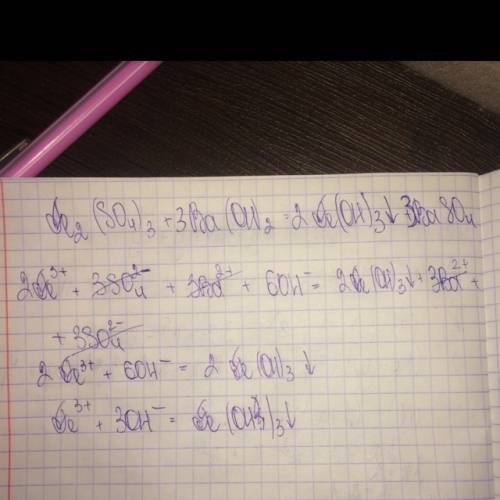 Fe₂(SO₄)₃ + 3Ba(OH)₂ = 2Fe(OH)₃↓ 3BaSO₄
2Fe³⁺ + 3SO₄²⁻ + 3Ba²⁺ + 6OH⁻ = 2Fe(OH)₃↓ + 3Ba²⁺ +
+ 3SO₄²⁻
2Fe³⁺ + 6OH⁻ = 2Fe(OH)₃↓
Fe³⁺ + 3OH⁻ = Fe(OH)₃↓